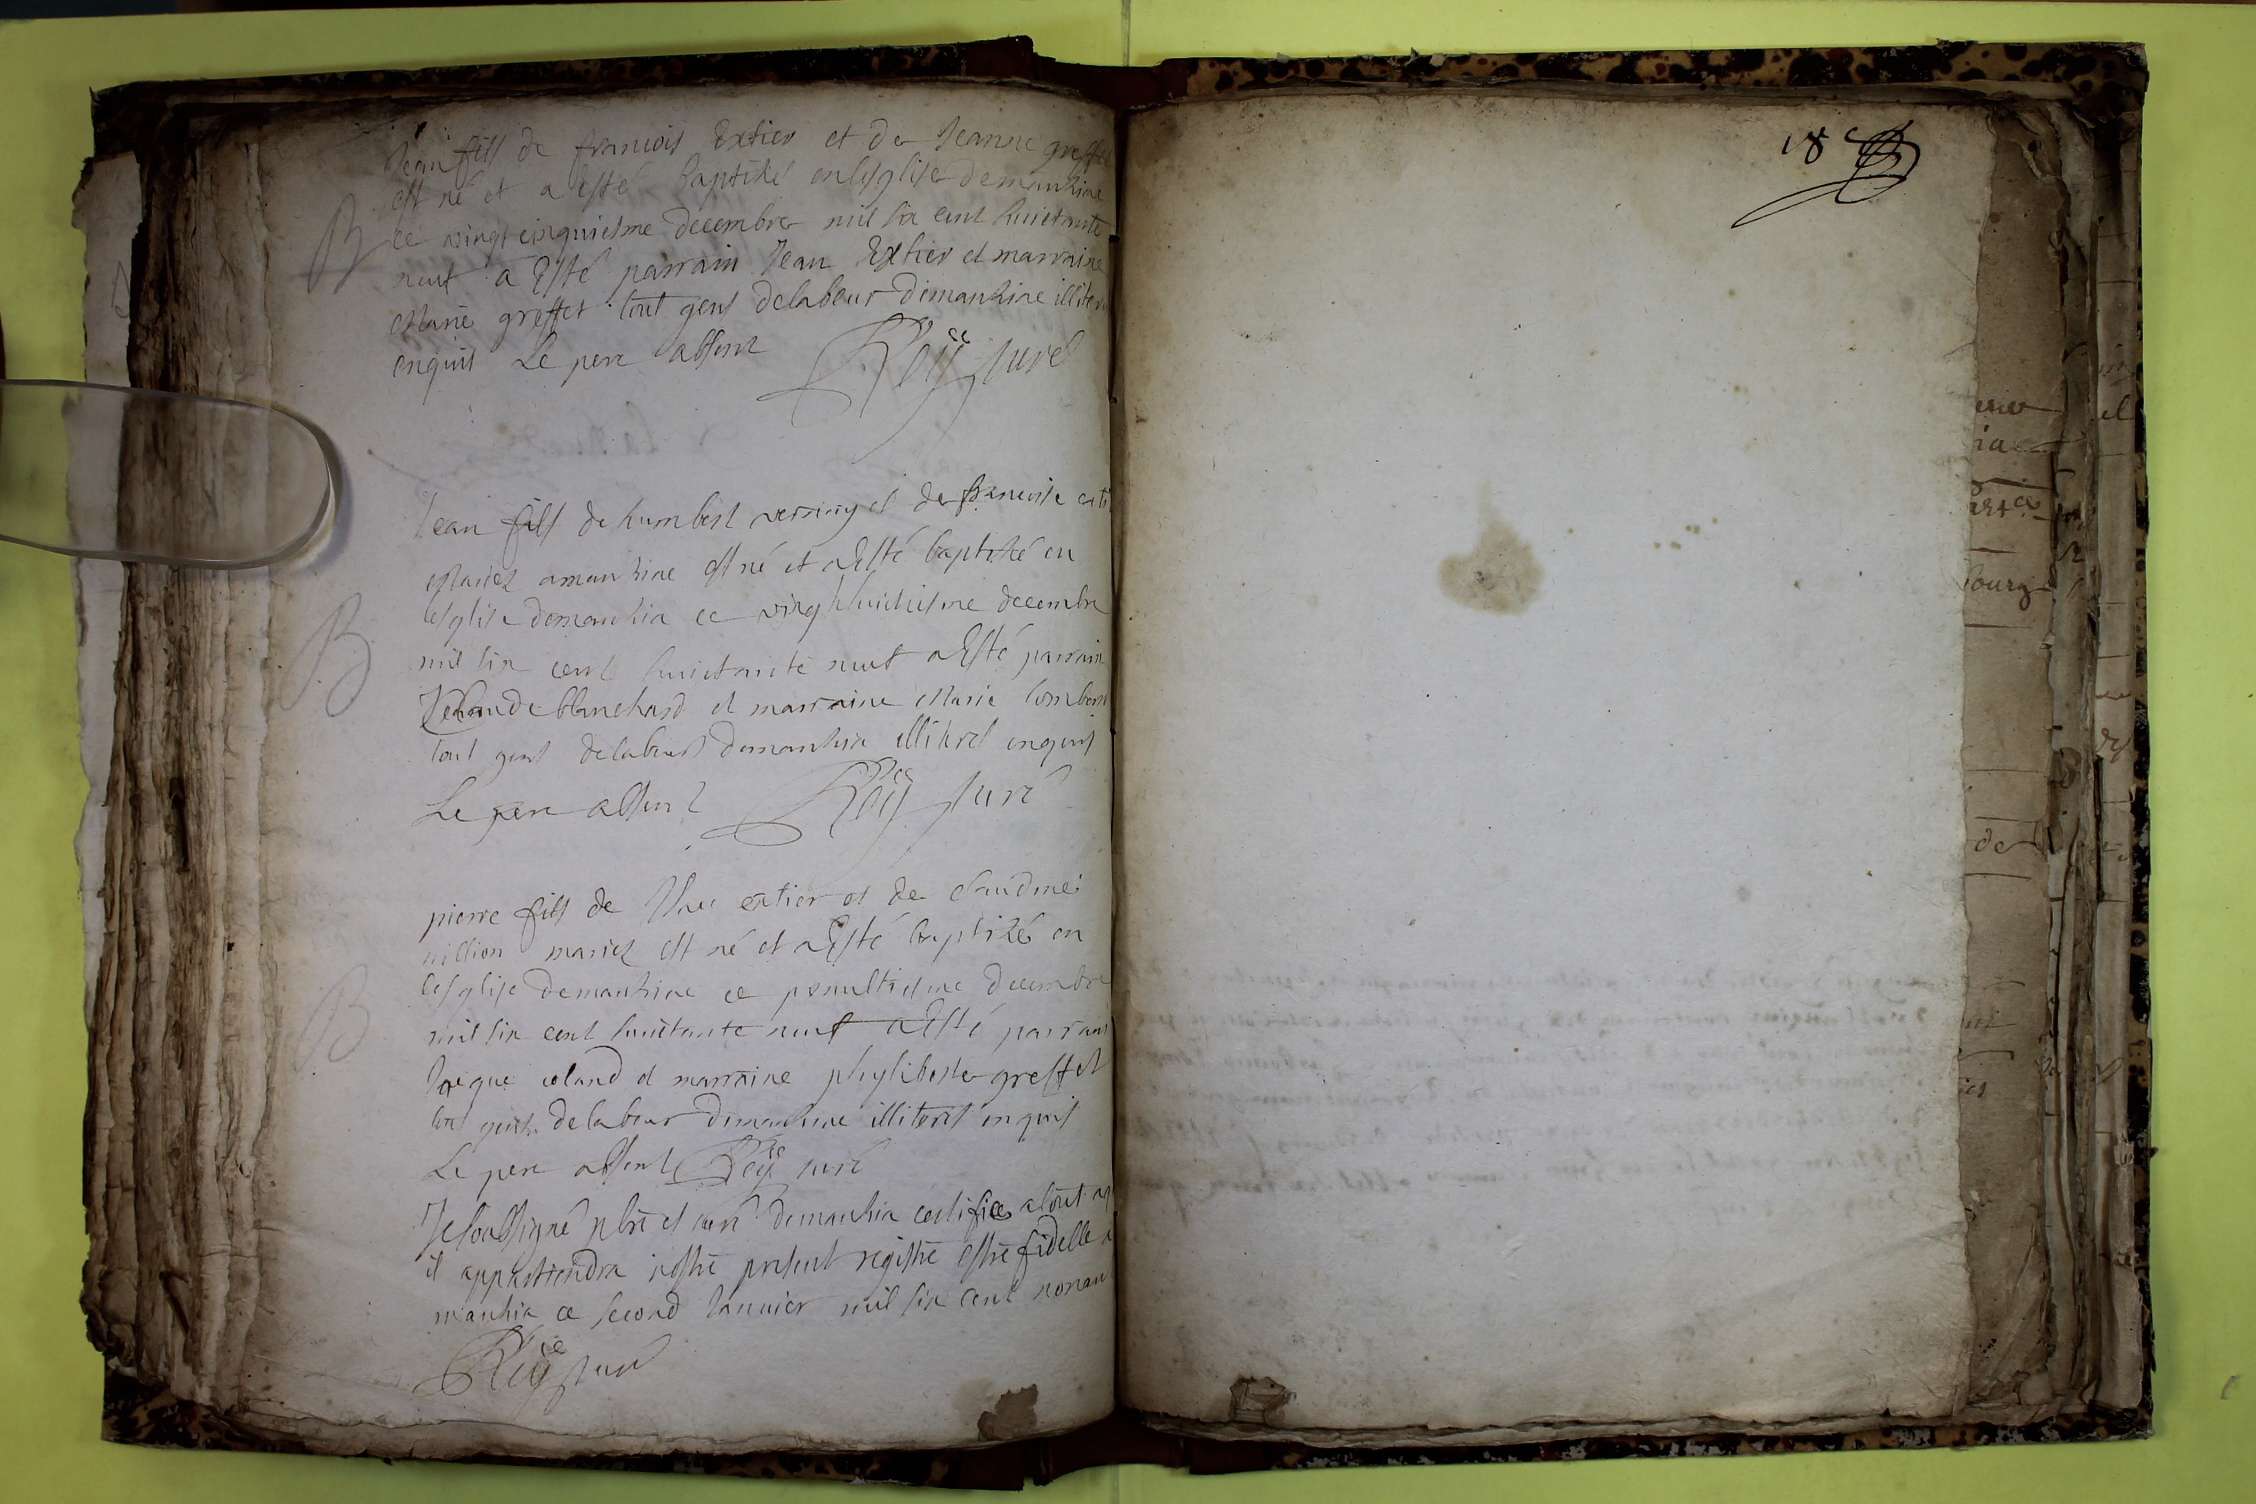 Jean fils de francois Extier et de Jeanne greffet
est né et a esté baptisé en lesglise demanziac
B
ce vingt cinquiesme decembre mil six cent huictante
neuf a Esté parrain Jean Extier et marraine
Marie greffet tout gens delabeur demanziac illiter
enquis Le pere absent Roÿ curé
Jean fils de humbert verriny et de francoise exti
Mariez amanziac est né et a Esté baptizé en
B
lesglise demanzia ce vingthuictiesme decembre
mil six cent huictante neuf a Esté parrain
blanchard et marraine Marie lombard
tout gens delabeur demanzia illiteres enquis
Le pere absent Roÿ curé
pierre fils de extier et de claudine
million mariez est né et a Esté baptizé en
lesglise demanziac ce penultiesme decembre
B
mil six cent huictante neuf a Esté parrain
Jacque coland et marraine phyliberte greffet
tout gens delabeur demanziac illiteres enquis
Le pere absent Roÿ curé
Je soubsigné pbre et curé demanzia certifie a tout
il appartiendra nostre present registre estre fidelle a
manzia ce second Janvier mil six cent nonan
Roÿ curé
18